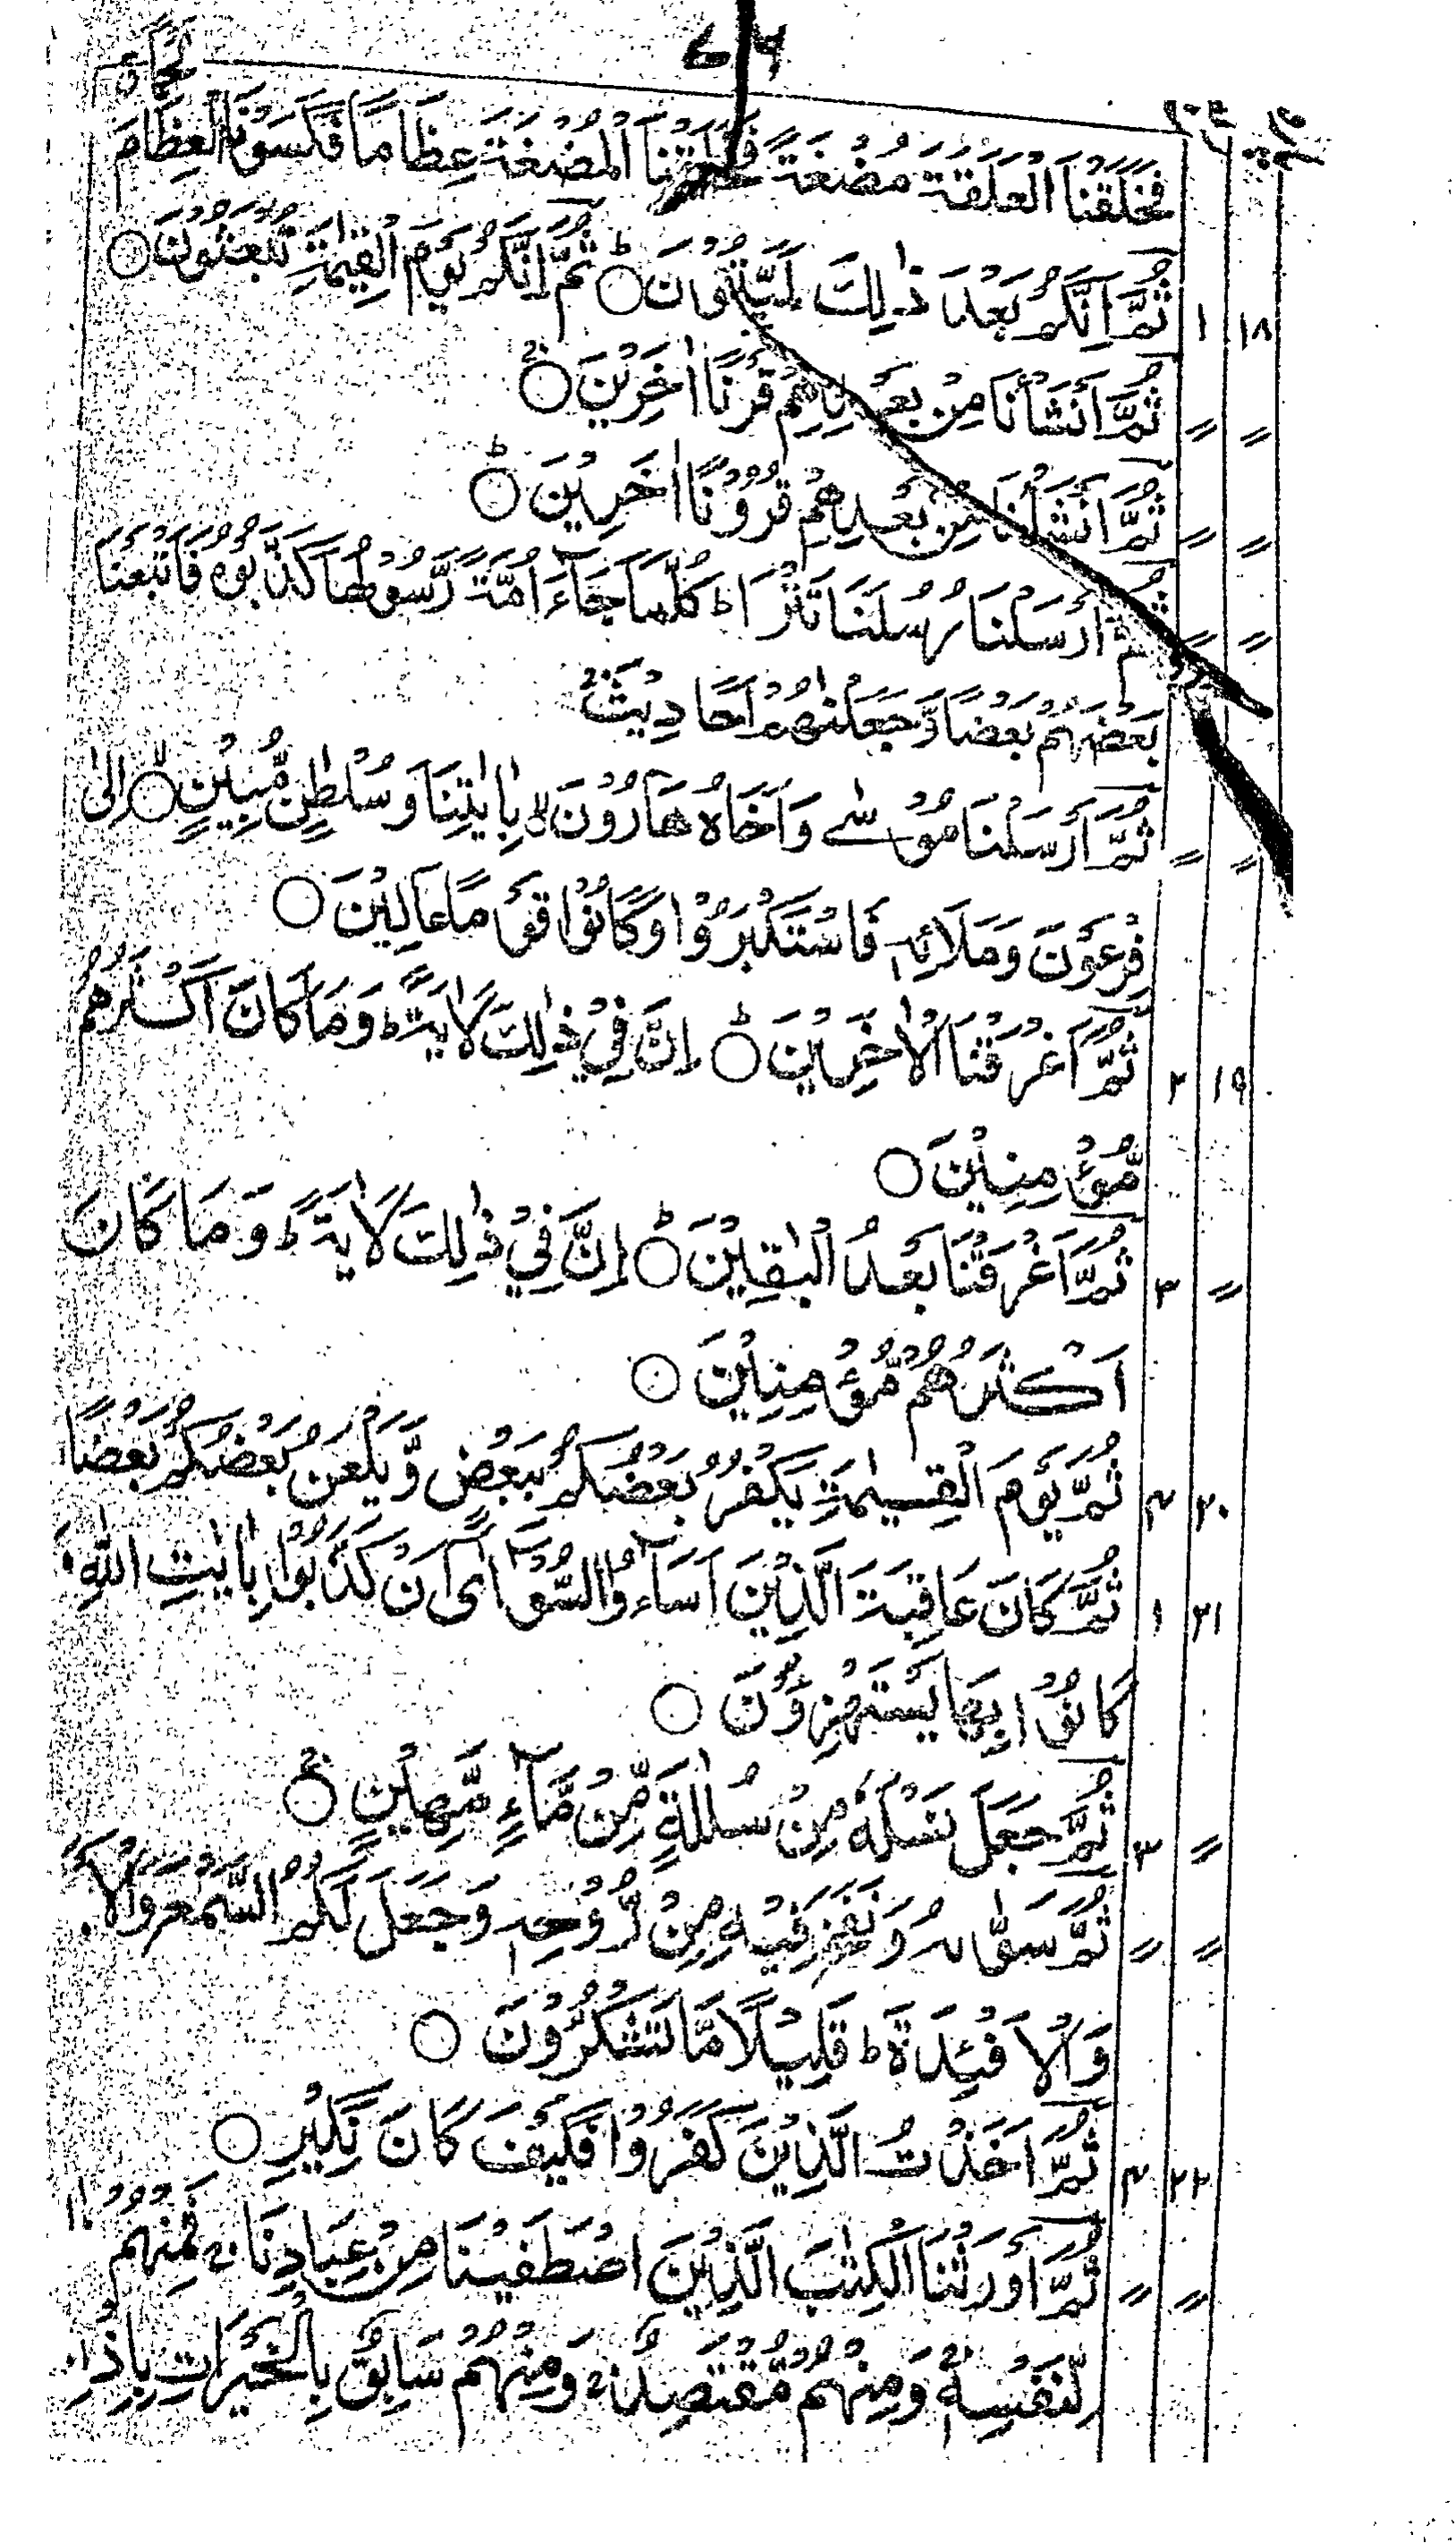 فَخَلَقْنَا الْعَلَقَةَ مُضْغَةً فَخَلَقْنَا الْمُضْغَةَ عِظَامًا فَكَسَوْنَا الْعِظَامَ لَحْمًا
۱۸ ۱ ثُمَّ اِنَّكُمْ بَعْدَ ذٰلِكَ لَمَيِّتُوْنَ ○ؕ ثُمَّ اِنَّكُمْ يَوْمَ الْقِيٰمَةِ تُبْعَثُوْنَ ○
〃 〃 ثُمَّ اَنْشَاْنَا مِنْۢ بَعْدِهِمْ قَرْنًا اٰخَرِيْنَ ○ۚ
〃 〃 ثُمَّ اَنْشَاْنَا مِنْۢ بَعْدِهِمْ قُرُوْنًا اٰخَرِيْنَ ○ؕ
〃 〃 ثُمَّ اَرْسَلْنَا رُسُلَنَا تَتْرَا ؕ كُلَّمَا جَآءَ اُمَّةً رَّسُوْلُهَا كَذَّبُوْهُ فَاَتْبَعْنَا
بَعْضَهُمْ بَعْضًا وَّجَعَلْنٰهُمْ اَحَادِيْثَ ۚ
〃 〃 ثُمَّ اَرْسَلْنَا مُوْسٰى وَاَخَاهُ هَارُوْنَ ۙ بِاٰيٰتِنَا وَسُلْطٰنٍ مُّبِيْنٍ ○ۙ اِلٰى
فِرْعَوْنَ وَمَلَائِهٖ فَاسْتَكْبَرُوْا وَكَانُوْا قَوْمًا عَالِيْنَ ○
۱۹ ۲ ثُمَّ اَغْرَقْنَا الْاٰخَرِيْنَ ○ؕ اِنَّ فِيْ ذٰلِكَ لَاٰيَةً ؕ وَمَا كَانَ اَكْثَرُهُمْ
مُّؤْمِنِيْنَ ○
〃 ۳ ثُمَّ اَغْرَقْنَا بَعْدُ الْبٰقِيْنَ ○ؕ اِنَّ فِيْ ذٰلِكَ لَاٰيَةً ؕ وَمَا كَانَ
اَكْثَرُهُمْ مُّؤْمِنِيْنَ ○
۲۰ ۴ ثُمَّ يَوْمَ الْقِيٰمَةِ يَكْفُرُ بَعْضُكُمْ بِبَعْضٍ وَّيَلْعَنُ بَعْضُكُمْ بَعْضًا
۲۱ ۱ ثُمَّ كَانَ عَاقِبَةَ الَّذِيْنَ اَسَآءُوا السُّوْٓاٰى اَنْ كَذَّبُوْا بِاٰيٰتِ اللّٰهِ
كَانُوْا بِهَا يَسْتَهْزِءُوْنَ ○
〃 ۳ ثُمَّ جَعَلَ نَسْلَهٗ مِنْ سُلٰلَةٍ مِّنْ مَّآءٍ مَّهِيْنٍ ○ۚ
〃 〃 ثُمَّ سَوّٰىهُ وَنَفَخَ فِيْهِ مِنْ رُّوْحِهٖ وَجَعَلَ لَكُمُ السَّمْعَ وَالْاَ
وَالْاَفْئِدَةَ ؕ قَلِيْلًا مَّا تَشْكُرُوْنَ ○
۲۲ ۴ ثُمَّ اَخَذْتُ الَّذِيْنَ كَفَرُوْا فَكَيْفَ كَانَ نَكِيْرِ ○
〃 〃 ثُمَّ اَوْرَثْنَا الْكِتٰبَ الَّذِيْنَ اصْطَفَيْنَا مِنْ عِبَادِنَا ۚ فَمِنْهُمْ
لِّنَفْسِهٖ ۚ وَمِنْهُمْ مُّقْتَصِدٌ ۚ وَمِنْهُمْ سَابِقٌۢ بِالْخَيْرَاتِ بِاِذْ